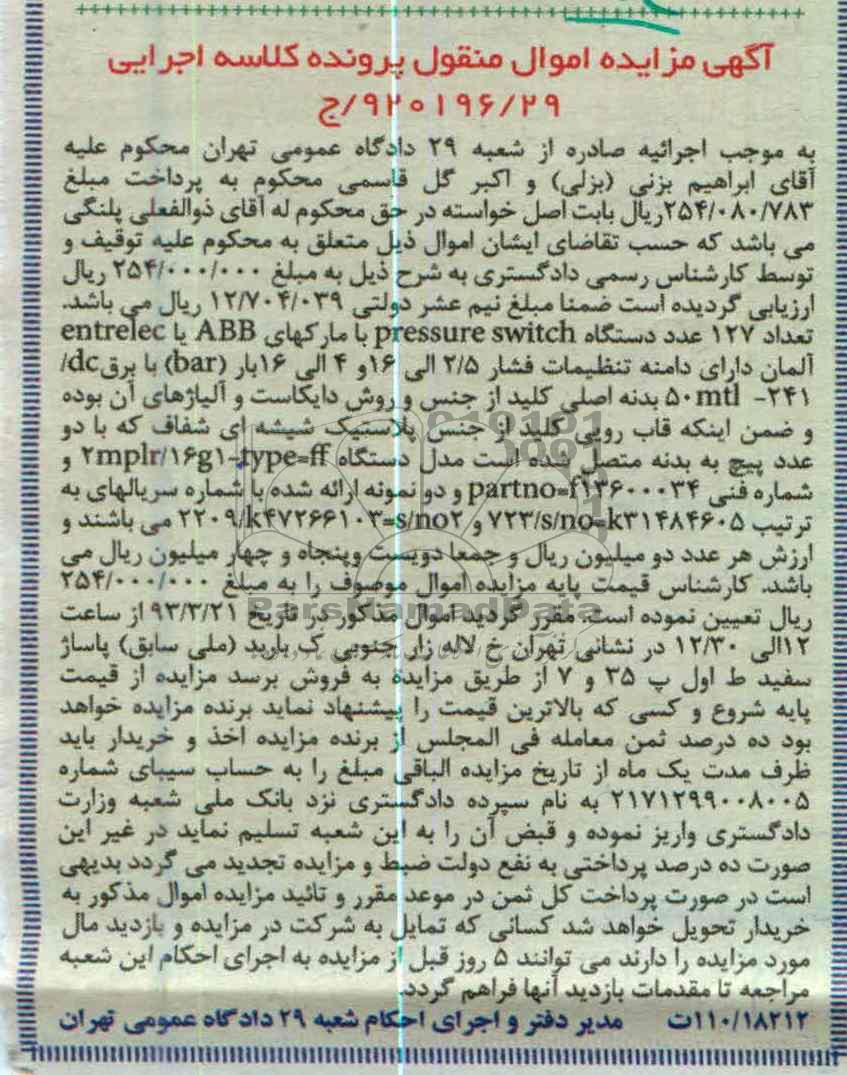 آگهی مزایده اموال منقول پرونده کلاسه اجرایی
۹۲۰۱۹۶/۲۹/ج
به موجب اجرائیه صادره از شعبه ۲۹ دادگاه عمومی تهران محکوم علیه
آقای ابراهیم بزنی (بزلی) و اکبر گل قاسمی محکوم به پرداخت مبلغ
۲۵۴/۰۸۰/۷۸۳ریال بابت اصل خواسته در حق محکوم له آقای ذوالفعلی پلنگی
می باشد که حسب تقاضای ایشان اموال ذیل متعلق به محکوم علیه توقیف و
توسط کارشناس رسمی دادگستری به شرح ذیل به مبلغ ۲۵۴/۰۰۰/۰۰۰ ریال
ارزیابی گردیده است ضمنا مبلغ نیم عشر دولتی ۱۲/۷۰۴/۰۳۹ ریال می باشد.
تعداد ۱۲۷ عدد دستگاه pressure switch با مارکهای ABB یا entrelec
آلمان دارای دامنه تنظیمات فشار ۲/۵ الی ۱۶و ۴ الی ۱۶بار (bar) با برقdc/
۲۴۱- ۵۰mtl بدنه اصلی کلید از جنس و روش دایکاست و آلیاژهای آن بوده
و ضمن اینکه قاب رویی کلید از جنس پلاستیک شیشه ای شفاف که با دو
عدد پیچ به بدنه متصل شده است مدل دستگاه ۲mplr/۱۶g۱-type=ff و
شماره فنی partno=f۱۳۶۰۰۰۳۴ و دو نمونه ارائه شده با شماره سریالهای به
ترتیب ۷۲۳/s/no=k۳۱۴۸۴۶۰۵ و ۲۲۰۹/k۴۷۲۶۶۱۰۳=s/no۲ می باشند و
ارزش هر عدد دو میلیون ریال و جمعا دویست وپنجاه و چهار میلیون ریال می
باشد. کارشناس قیمت پایه مزایده اموال موصوف را به مبلغ ۲۵۴/۰۰۰/۰۰۰
ریال تعیین نموده است. مقرر گردید اموال مذکور در تاریخ ۹۳/۳/۲۱ از ساعت
۱۲الی ۱۲/۳۰ در نشانی تهران خ لاله زار جنوبی ک باربد (ملی سابق) پاساژ
سفید ط اول پ ۳۵ و ۷ از طریق مزایده به فروش برسد مزایده از قیمت
پایه شروع و کسی که بالاترین قیمت را پیشنهاد نماید برنده مزایده خواهد
بود ده درصد ثمن معامله فی المجلس از برنده مزایده اخذ و خریدار باید
ظرف مدت یک ماه از تاریخ مزایده الباقی مبلغ را به حساب سیبای شماره
۲۱۷۱۲۹۹۰۰۸۰۰۵ به نام سپرده دادگستری نزد بانک ملی شعبه وزارت
دادگستری واریز نموده و قبض آن را به این شعبه تسلیم نماید در غیر این
صورت ده درصد پرداختی به نفع دولت ضبط و مزایده تجدید می گردد بدیهی
است در صورت پرداخت کل ثمن در موعد مقرر و تائید مزایده اموال مذکور به
خریدار تحویل خواهد شد کسانی که تمایل به شرکت در مزایده و بازدید مال
مورد مزایده را دارند می توانند ۵ روز قبل از مزایده به اجرای احکام این شعبه
مراجعه تا مقدمات بازدید آنها فراهم گردد.
۱۱۰/۱۸۲۱۲ت مدیر دفتر و اجرای احکام شعبه ۲۹ دادگاه عمومی تهران
ParsNamadData